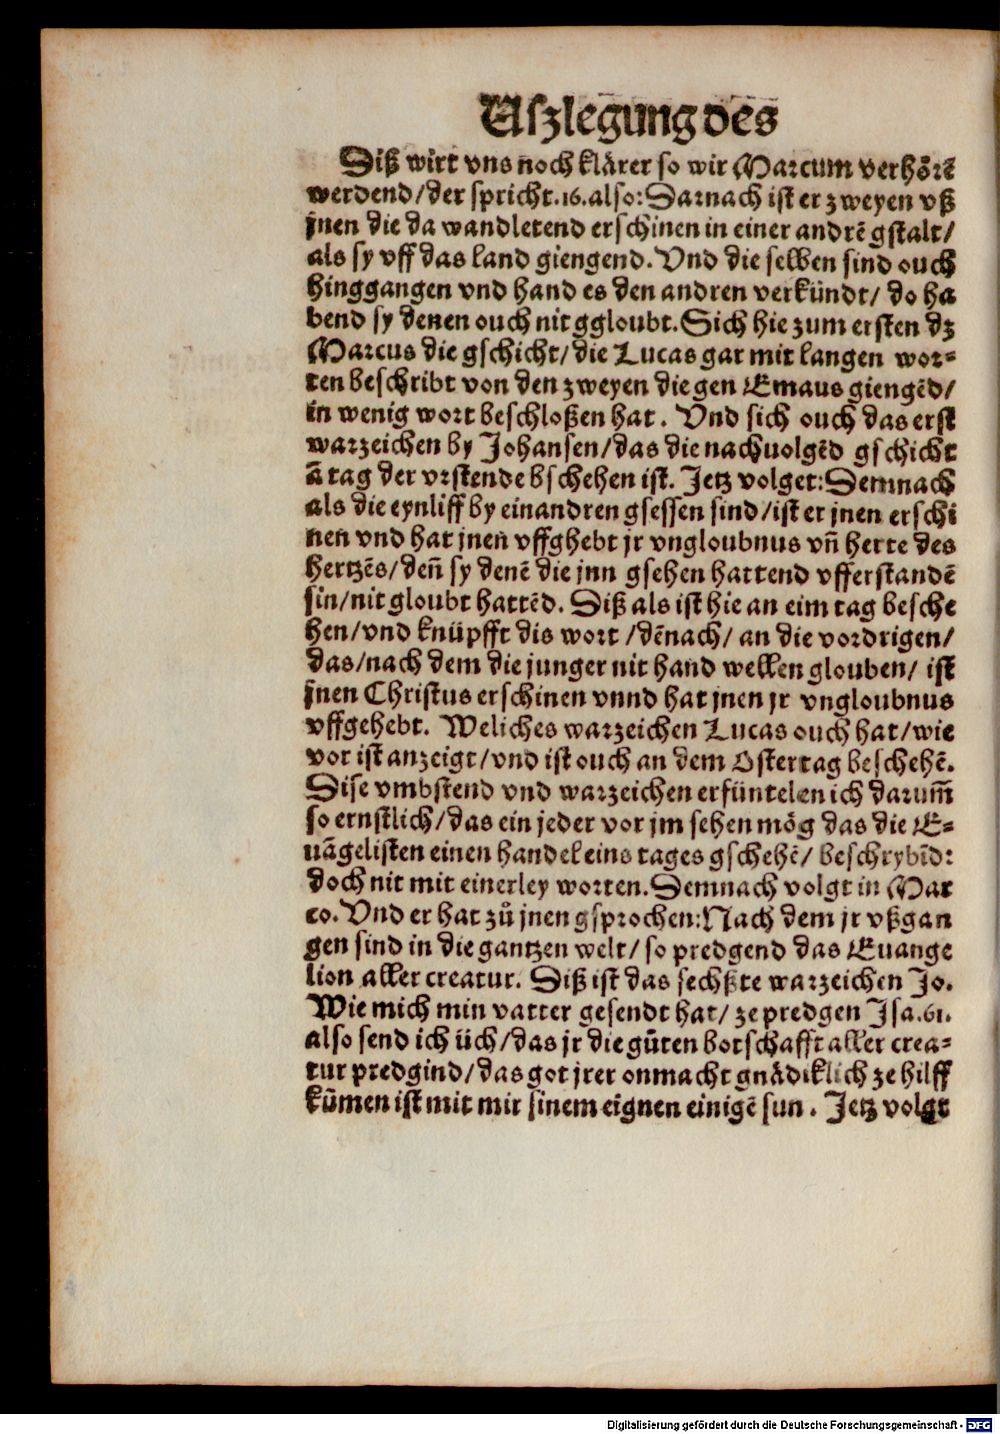 Uſzlegung des
Diß wirt vns noch klärer so wir Marcum verhörē
werdend/der spricht.16.also: Darnach ist er zweyen vß
jnen die da wandletend erschinen in einer andrē gstalt/
als sy vff das land giengend. Vnd die selben sind ouch
hinggangen vnd hand es den andren verkündt/ do ha
bend sy denen ouch nit ggloubt. Sich hie zum ersten dz
Marcus die gschicht/die Lucas gar mit langen wor-
ten beschribt von den zweyen die gen Emaus giengēd/
in wenig wort beschloßen hat. Vnd sich ouch das erst
warzeichen by Johansen/das die nachuolgēd gschicht
ā tag der vrstende bschehen ist. Jetz volget: Demnach
als die eynliff by einandren gsessen sind/ist er jnen erschi
nen vnd hat jnen vffghebt jr vngloubnus vn̄ herte des
hertzēs/den̄ sy denē die jnn gsehen hattend vfferstandē
sin/nit gloubt hattēd. Diß als ist hie an eim tag besche
hen/vnd knüpfft dis wort /dēnach/ an die vordrigen/
das/nach dem die junger nit hand wellen glouben/ ist
jnen Christus erschinen vnnd hat jnen jr vngloubnus
vffgehebt. Weliches warzeichen Lucas ouch hat/wie
vor ist anzeigt/vnd ist ouch an dem Ostertag beschehē.
Dise vmbstend vnd warzeichen erfüntelen ich darum̄
so ernstlich/das ein jeder vor jm sehen mög das die E-
uāgelisten einen handel eins tages gschehē/ beschrybīd:
doch nit mit einerley worten. Demnach volgt in Mar
co. Vnd er hat zů jnen gsprochen: Nach dem jr vßgan
gen sind in die gantzen welt/ so predgend das Euange
lion aller creatur. Diß ist das sechßte warzeichen Jo.
Wie mich min vatter gesendt hat/ ze predgen Isa.61.
also send ich üch/das jr die gůten botschafft aller crea-
tur predgind/das got jrer onmacht gnädiklich ze hilff
kūmen ist mit mir sinem eignen einigē sun. Jetz volgt
Digitalisierung gefördert durch die Deutsche Forschungsgemeinschaft - DFG